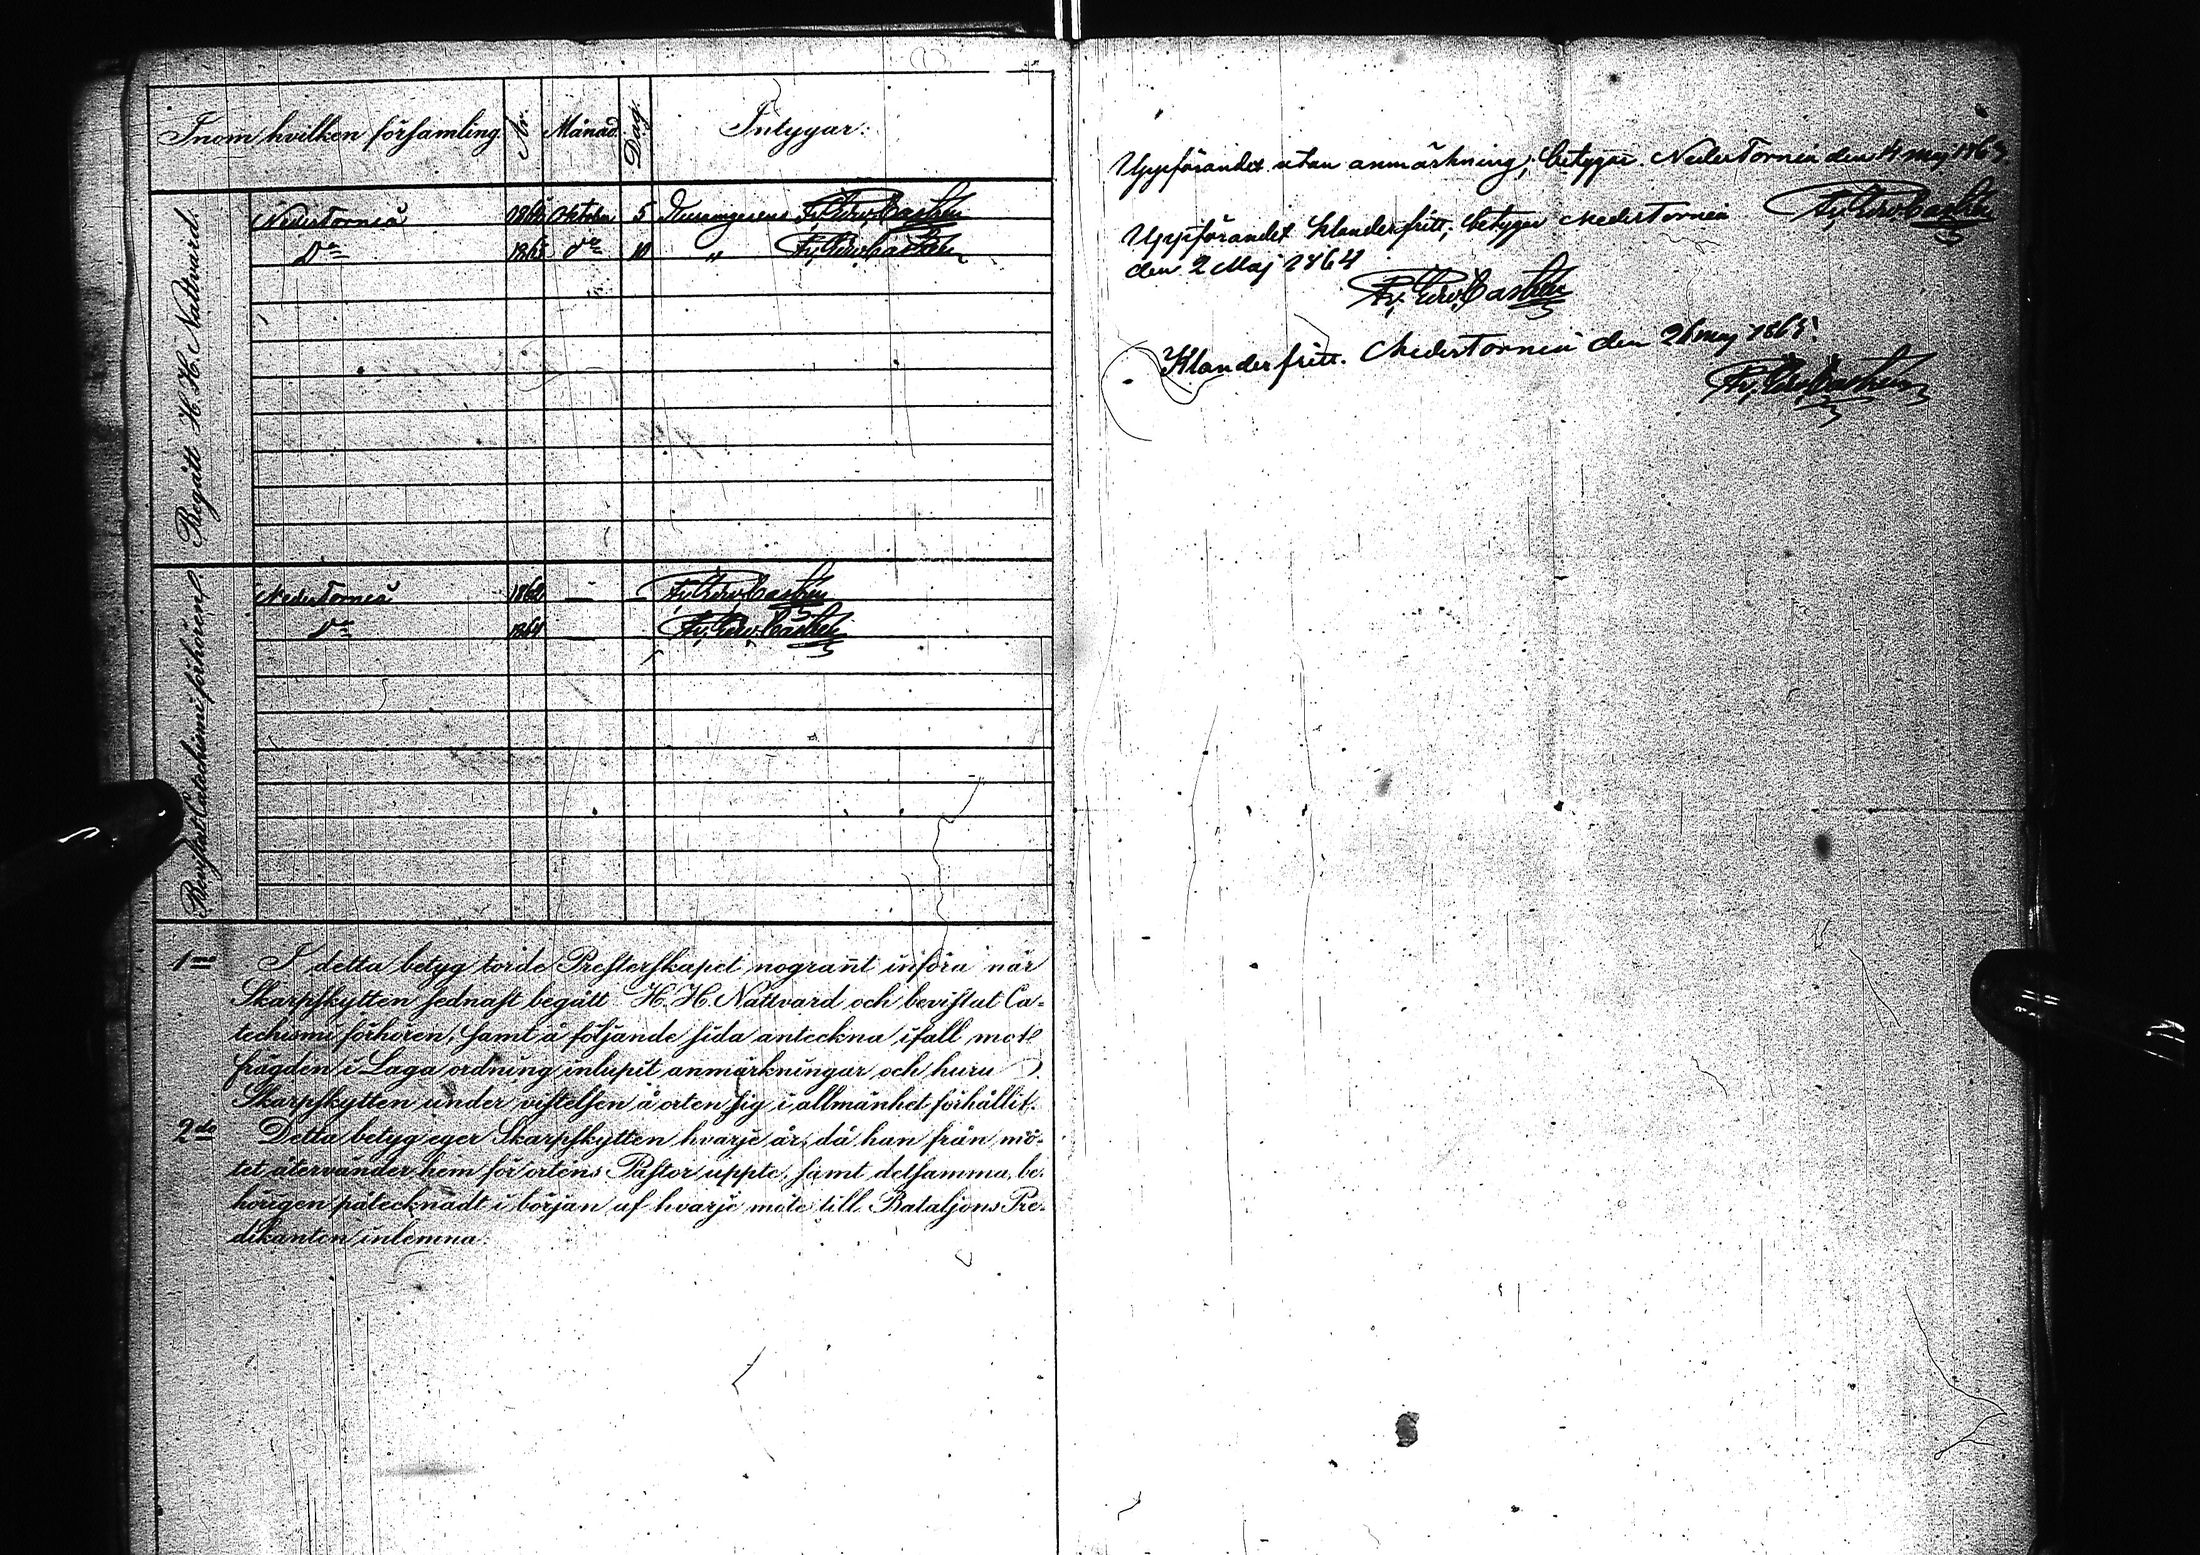 Inom hvilken församling. År. Månad. Dag. Intygar:
Begått H.H. Nattvard.
NederTorneå Oktober 5 Fr. Edv. Castrén
Do do 10 " Fr. Edv. Castrén
Bevistat Catechismiförhören.
NederTorneå 1862 — Fr. Edv. Castrén
Do 1864 — Fr. Edv. Castrén
1o I detta betyg torde Presterskapet nogrant införa när
Skarpskytten sednast begått H. H. Nattvard och bevistat Ca-
techismi förhören, samt å följande sida anteckna ifall mot
frägden i Laga ordning inlupit anmärkningar och huru
Skarpskytten under vistelsen å orten sig i allmänhet förhållit.
2do Detta betyg eger Skarpskytten hvarje år, då han från mö-
tet återvänder hem för ortens Pastor uppte, samt detsamma, be-
hörigen påtecknadt i början af hvarje möte till Bataljons Pre-
dikanten inlemna.
Uppförandet utan anmärkning, betygar. NederTorneå den 14 maj 1863.
Fr. Edv. Castrén
Uppförandet klanderfritt; betygar NederTorneå
den 2 Maj 1864
Fr. Edv. Castrén
Klanderfritt. NederTorneå den 26 maj 1865.
Fr. Edv. Castrén